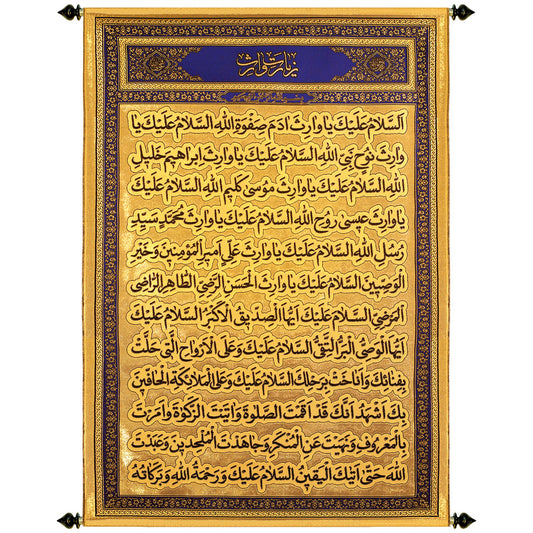 زیارت وارث
اَلسَّلامُ عَلَيْكَ يا وارِثَ ادَمَ صِفْوَةِ اللهِ السَّلامُ عَلَيْكَ يا
وارِثَ نوُحٍ نَبِىِّ اللهِ السَّلامُ عَلَيْكَ يا وارِثَ اِبراهيمَ خَليلِ
اللهِ السَّلامُ عَلَيْكَ يا وارِثَ مُوسى كَليمِ اللهِ السَّلامُ عَلَيْكَ
يا وارِثَ عيسى رُوحِ اللهِ السَّلامُ عَلَيْكَ يا وارِثَ مُحَمَّدٍ سَيِّدِ
رُسُلِ اللهِ السَّلامُ عَلَيْكَ يا وارِثَ عَلِىٍّ اَميرِ المُؤمِنينَ وَ خَيْرِ
الْوَصِيّينَ السَّلامُ عَلَيْكَ يا وارِثَ الْحَسَنِ الرَّضِىِّ الطّاهِرِ الرّاضِى
الْمَرْضِىِّ السَّلامُ عَلَيْكَ اَيُّهَا الصِّديقُ الْاَكْبَرُ السَّلامُ عَلَيْكَ
اَيُّهَا الْوَصِىُّ الْبَرُّ التَّقِىُّ السَّلامُ عَلَيْكَ وَ عَلَى الْاَرْواحِ الَّتى حَلَّتْ
بِفِنائِكَ وَ اَناخَتْ بِرَحْلِكَ السَّلامُ عَلَيْكَ وَ عَلَى الْمَلائِكَةِ الْحافّينَ
بِكَ اَشْهَدُ اَنَّكَ قَدْ اَقَمْتَ الصَّلوةَ وَ اتَيْتَ الزَّكوةَ وَ اَمَرْتَ
بِالْمَعْرُوفِ وَ نَهَيْتَ عَنِ الْمُنْكَرِ وَ جاهَدْتَ الْمُلْحِدينَ وَ عَبَدْتَ
اللهَ حَتّى اَتيكَ الْيَقينُ السَّلامُ عَلَيْكَ وَ رَحْمَةُ اللهِ وَ بَرَكاتُهُ